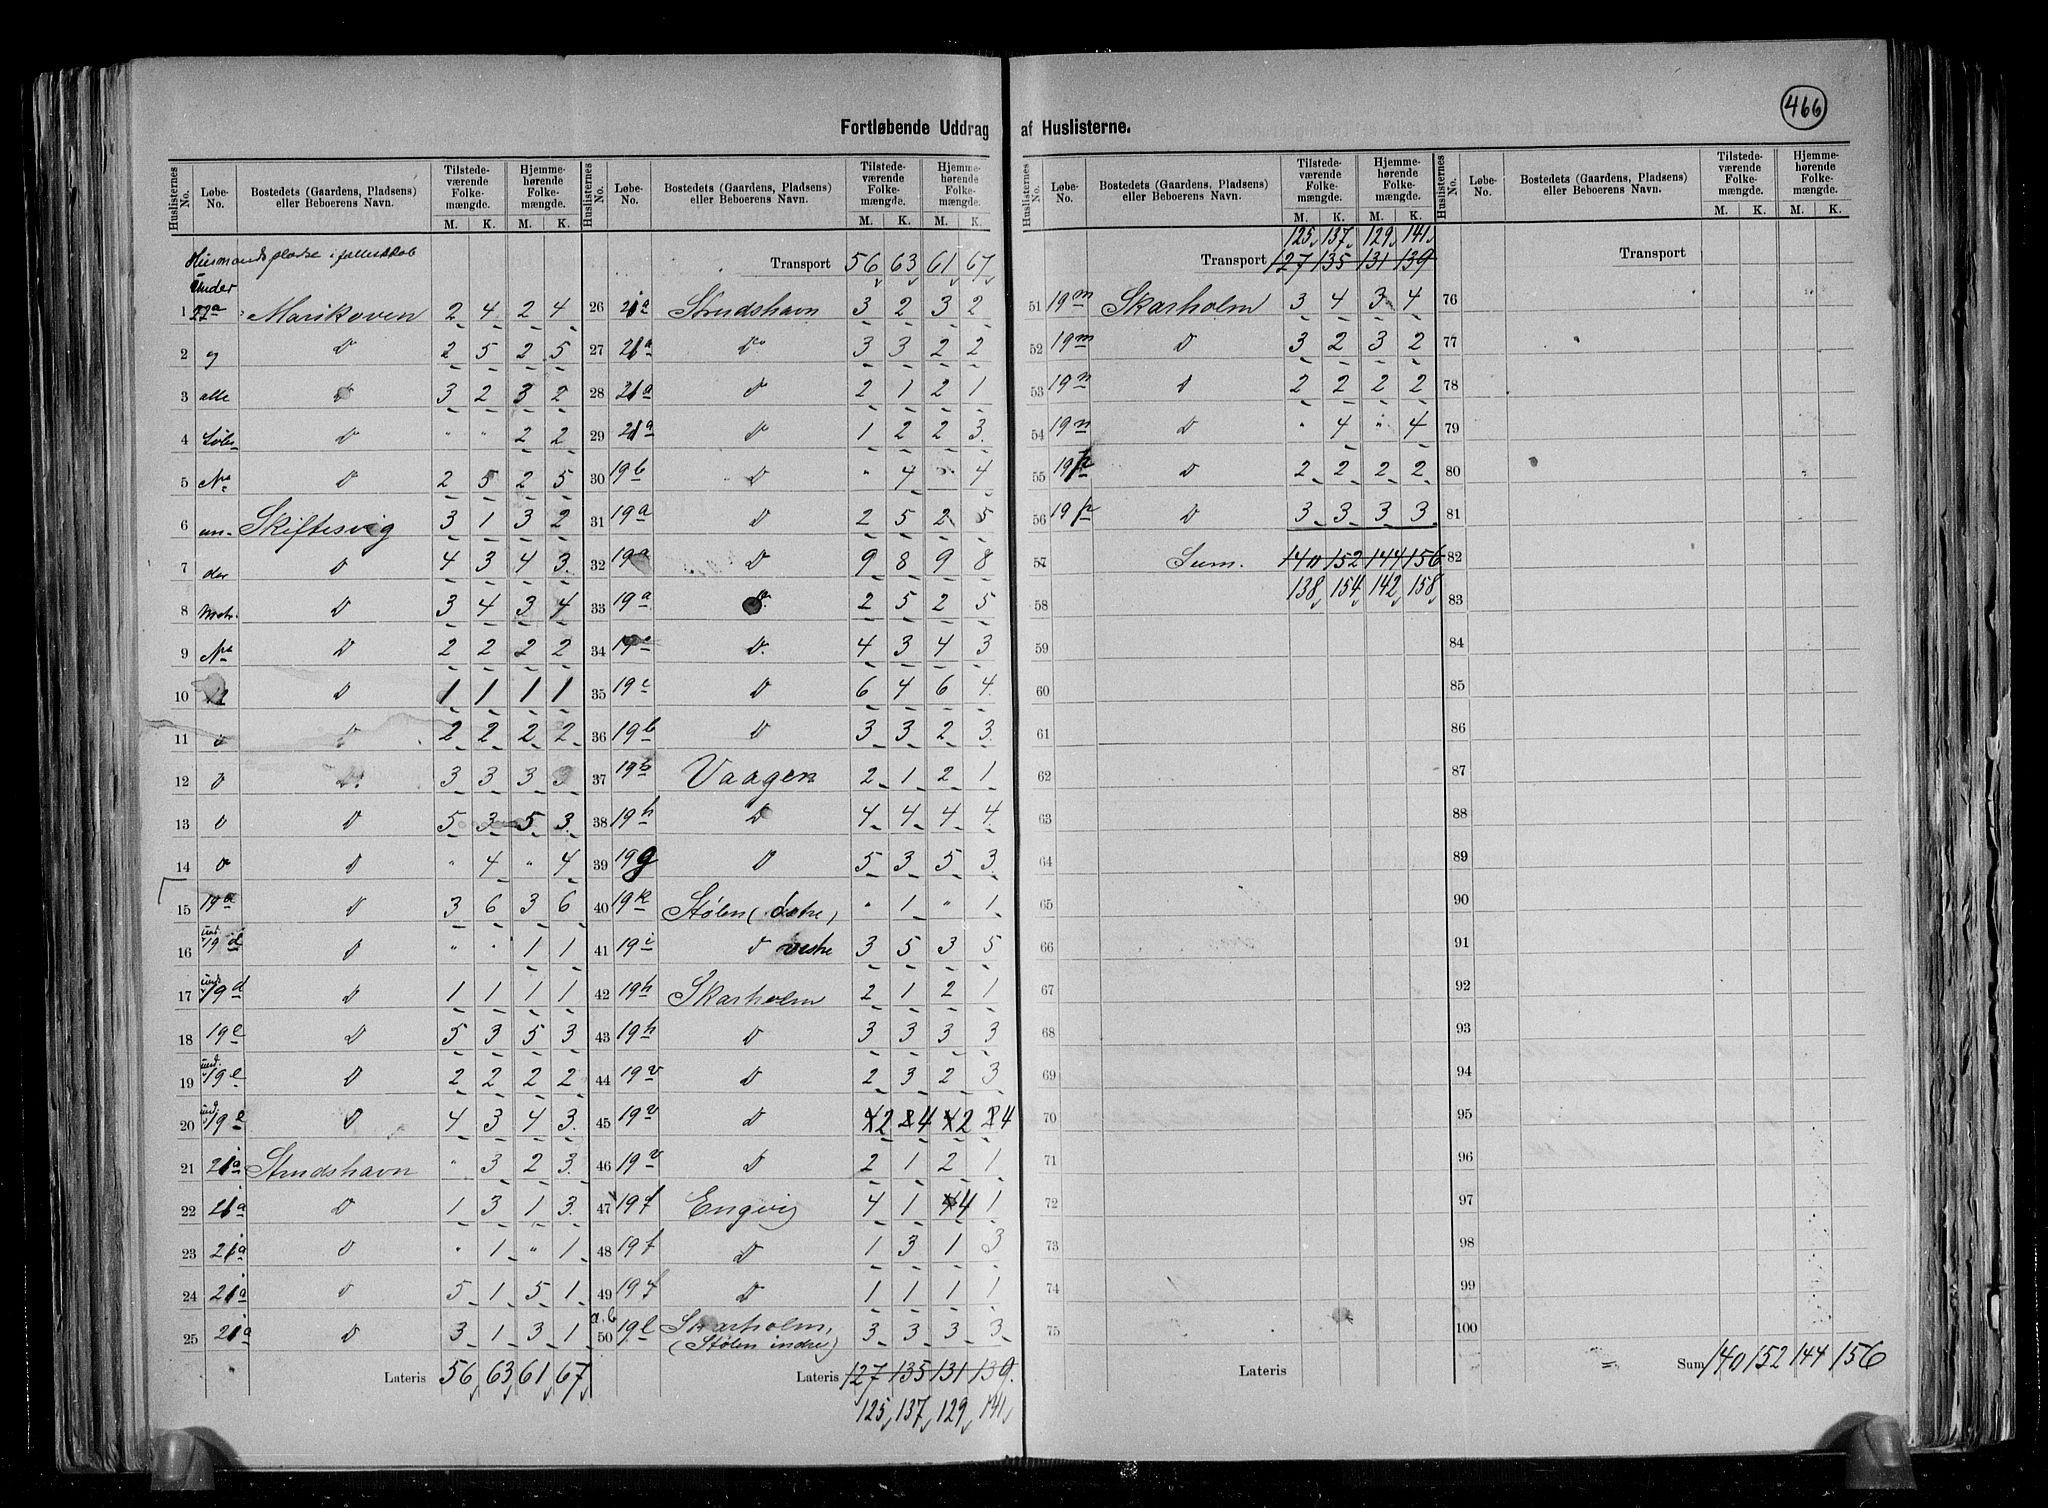 466
Fortløbende Uddrag af Huslisterne.
Huslisternes No. | Løbe-No. | Bostedets (Gaardens, Pladsens) eller Beboerens Navn. | Tilstede-værende Folke-mængde. M. K. | Hjemme-hørende Folke-mængde. M. K.
Husmandspladse i fællesskab
Under
1 22a Marikoven 2 4 2 4
2 og D 2 5 2 5
3 alle D 3 2 3 2
4 Løbe- D " " 2 2
5 No D 2 5 2 5
6 un- Skiftesvig 3 1 3 2
7 der D 4 3 4 3
8 Matr. D 3 4 3 4
9 No D 2 2 2 2
10 D 1 1 1 1
11 D 2 2 2 2
12 D D 3 3 3 3
13 D D 5 3 5 3
14 D D " 4 " 4
15 19a D 3 6 3 6
16 und. 19d D " " 1 1
17 und. 19d D 1 1 1 1
18 19e D 5 3 5 3
19 und. 19e D 2 2 2 2
20 und. 19e D 4 3 4 3
21 21a Strudshavn " 3 2 3
22 21a D 1 3 1 3
23 21a D " 1 " 1
24 21a D 5 1 5 1
25 21a D 3 1 3 1
Lateris 56 63 61 67
Huslisternes No. | Løbe-No. | Bostedets (Gaardens, Pladsens) eller Beboerens Navn. | Tilstede-værende Folke-mængde. M. K. | Hjemme-hørende Folke-mængde. M. K.
Transport 56 63 61 67
26 21a Strudshavn 3 2 3 2
27 21a Do 3 3 2 2
28 21a D 2 1 2 1
29 21a D 1 2 2 3
30 19b D " 4 " 4
31 19a D 2 5 2 5
32 19a D 9 8 9 8
33 19a D 2 5 2 5
34 19 D 4 3 4 3
35 19c D 6 4 6 4
36 19b D 3 3 2 3
37 19b Vaagen 2 1 2 1
38 19h D 4 4 4 4
39 19g D 5 3 5 3
40 19k Stølen (østre) " 1 " 1
41 19i D vestre 3 5 3 5
42 19h Skarholm 2 1 2 1
43 19h D 3 3 3 3
44 19v D 2 3 2 3
45 19v D 2 4 2 4
46 19v D 2 1 2 1
47 19f Engvig 4 1 4 1
48 19f D 1 3 1 3
49 19f D 1 1 1 1
a, b 50 19l Skarholm, (Stølen indre) 3 3 3 3
Lateris 127 135 131 139
125 137 129 141
Huslisternes No. | Løbe-No. | Bostedets (Gaardens, Pladsens) eller Beboerens Navn. | Tilstede-værende Folke-mængde. M. K. | Hjemme-hørende Folke-mængde. M. K.
125 137 129 141
Transport 127 135 131 139
51 19m Skarholm 3 4 3 4
52 19m D 3 2 3 2
53 19n D 2 2 2 2
54 19n D " 4 " 4
55 19p D 2 2 2 2
56 19p D 3 3 3 3
57 Sum. 140 152 144 156
58 138 154 142 158
59
60
61
62
63
64
65
66
67
68
69
70
71
72
73
74
75
Lateris
Huslisternes No. | Løbe-No. | Bostedets (Gaardens, Pladsens) eller Beboerens Navn. | Tilstede-værende Folke-mængde. M. K. | Hjemme-hørende Folke-mængde. M. K.
Transport
76
77
78
79
80
81
82
83
84
85
86
87
88
89
90
91
92
93
94
95
96
97
98
99
100
Sum 140 152 144 156